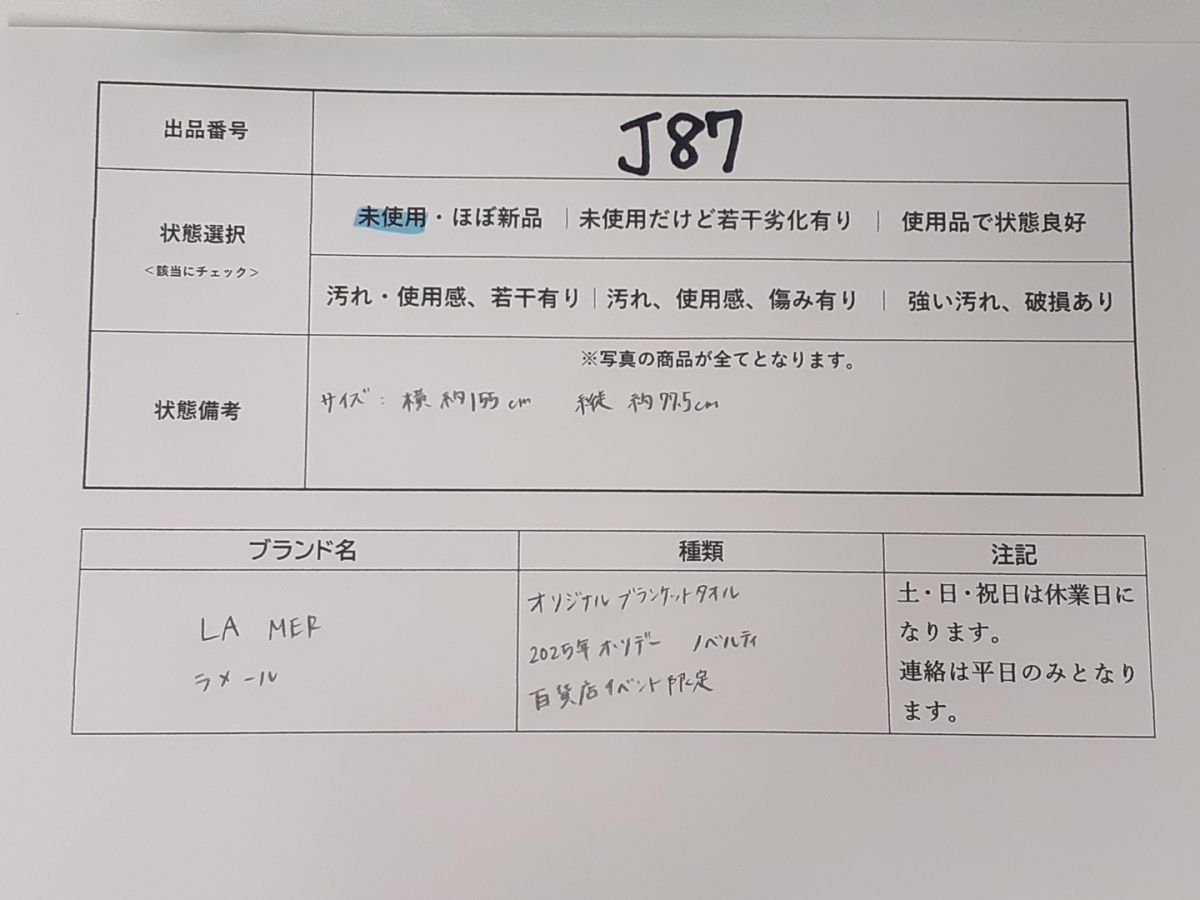 出品番号
J87
状態選択
<該当にチェック>
未使用・ほぼ新品 | 未使用だけど若干劣化有り | 使用品で状態良好
汚れ・使用感、若干有り | 汚れ、使用感、傷み有り | 強い汚れ、破損あり
状態備考
※写真の商品が全てとなります。
サイズ: 横 約155cm 縦 約77.5cm
ブランド名 種類 注記
LA MER
ラメール
オリジナル ブランケットタオル
2025年 ホリデー ノベルティ
百貨店イベント限定
土・日・祝日は休業日に
なります。
連絡は平日のみとなり
ます。